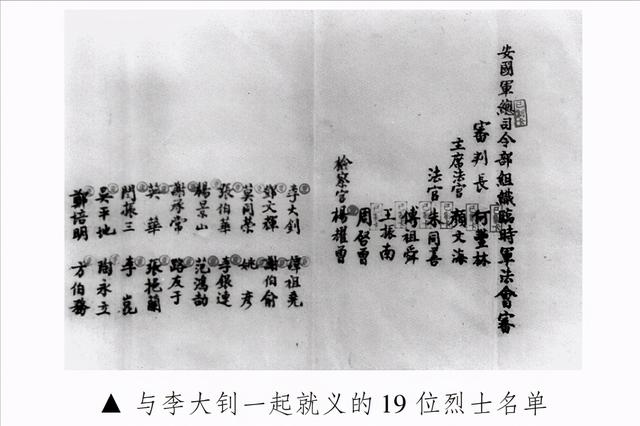 安國軍總司令部組織臨時軍法會審
審判長 何豐林
主席法官 顏文海
法官 朱同善
傅祖舜
王振南
周啓曾
檢察官楊耀曾
李大釗 譚祖堯
鄧文輝 謝伯俞
莫同榮 姚彥
張伯華 李銀連
楊景山 范鴻劼
謝承常 路友于
英華 張挹蘭
閆振三 李崑
吳平地 陶永立
鄭培明 方伯務
▲ 与李大钊一起就义的 19 位烈士名单